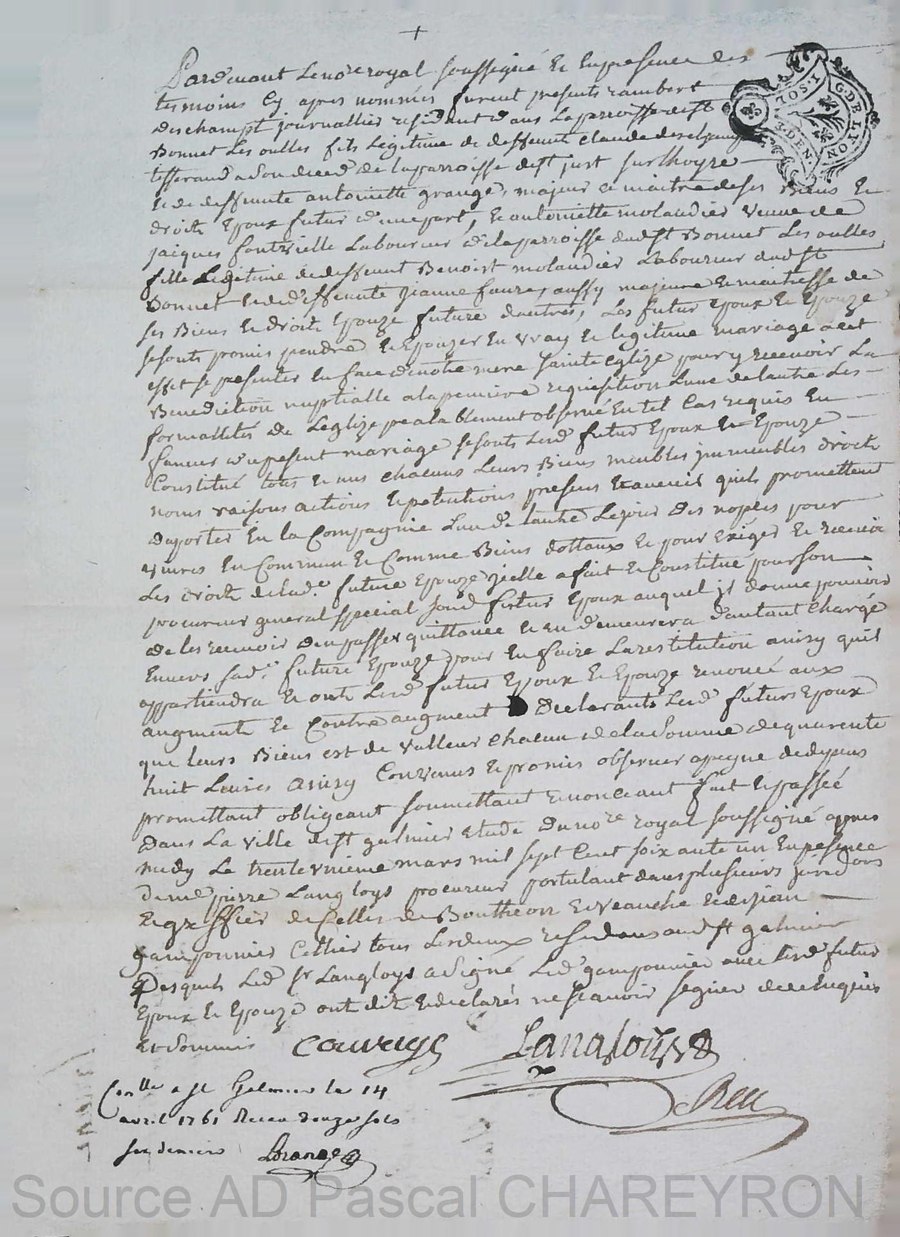 +
Pardevant Le no.re royal soussigné Et En presence des
tesmoins Cy apres nommés furent presents rambert
deschampt journallier residant dans La parroisse de st
Bonnet Les oulles fils Légitime de deffunt Claude deschamp
tisserand a son deced de la parroisse de st just sur Loyre
Et de deffunte antoinette grange, majeur Et maitre de ses Biens Et
droits Epoux futur d'une part, Et antoinette molandier veuve de
jacques fontvielle Laboureur de la parroisse dud st Bonnet Les oulles
fille Légitime de deffunt Benoist molandier Laboureur dud st
Bonnet Et de deffunte jeanne faure, aussy majeure Et maitresse de
ses Biens Et droits Epouze future d'autres, Les futur Epoux Et Epouze
se sonts promis prendre Et Epouzer En vray Et légitime mariage a cet
effet se presenter En face de notre mere sainte Eglize pour y recevoir La
Benediction nuptialle a la premiere requisition Lune de lautre Les
formallités de Leglize prealablement observé En tel Cas requis En
faveur du present mariage se sonts Lesd futur Epoux Et Epouze
Constitué tous Et uns chacuns Leurs Biens meubles immeubles droits
noms raisons actions Et petentions présens Et avenir quils promettent
daporter En la Compagnie Lun de lautre Le jour des nopces pour
vivres En Commun Et Comme Biens dottaux Et pour Exiger Et recevoir
Les droits de lad. future Epouze jcelle a fait Et Constitué pour son
procureur general Special sond futur Epoux auquel il donne pouvoir
de les recevoir den passer quittance Et En demeurera d'autant Chargé
Envers sad. future Epouze pour En faire La restitution ainsy quil
appartiendra Et onts Lesd futur Epoux Et Epouze renoncé aux
augments Et Contre augment Declarants Lesd futurs Epoux
que leurs Biens est de valleur chacun de la somme de quarente
huit Livres ainsy Convenus Et promis observer a peyne de depens
promettant obligeant soumettant renonceant fait Et passée
dans La ville de st galmier Etude du no.re royal soussigné appres
midy Le trente unieme mars mil sept Cent soixante un En presence
de me pierre Langloys procureur postulant dans plusieurs juridons
Et greffier de Celles de Bouthéon Et veauche Et de jean
gamponnier Cellier tous Lesdeux residans aud st galmier
Desquels Led sr Langloys a signé Led gamponnier avec Lesd futur
Epoux Et Epouze ont dit Et declarés ne scavoir segner de ce Enquis
Et sommés
Langloys
Conlle a st Galmier le 14
avril 1761 Receu douze sols
six deniers
G. DE LION
1. SOL
DEN.
Source AD Pascal CHAREYRON